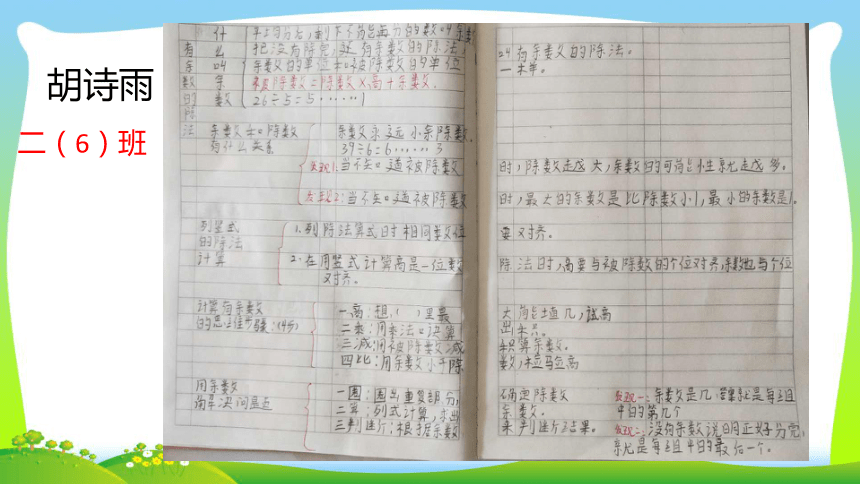 胡诗雨
二（6）班
有余数的除法
什么叫余数
平均分后,剩下不能再分的数叫余数
把没有除完,处有余数的除法,
余数的单位和被除数的单位
被除数=除数×商+余数.
26÷5=5……1
余数和除数
有什么关系
余数永远小余除数.
39÷6=6……3
发现1:当不知道被除数
发现2:当不知道被除数
列竖式
的除法
计算
1.列除法算式时相同数位
2.在用竖式计算商是一位数
对齐.
计算有余数
的思维步骤:(4步)
一商:想,( )里最
二乘:用乘法口诀算
三减:用被除数减
四比:用余数小于除
用余数
解决问题
一圈:圈出重复部分,
二算:列式计算,求出
三判断:根据余数
叫有余数的除法。
一样。
时,除数越大,余数的可能性就越多。
时,最大的余数是比除数小1,最小的余数是1.
要对齐.
除法时,商要与被除数的个位对齐,余数也与个位
大能填几,就商
出来.
积算余数.
数,检验商
确定除数
余数.
来判断结果。
发现一:余数是几,结果就是每组
中的第几个
发现二:没有余数说明正好分完,
就是每组中的最后一个.